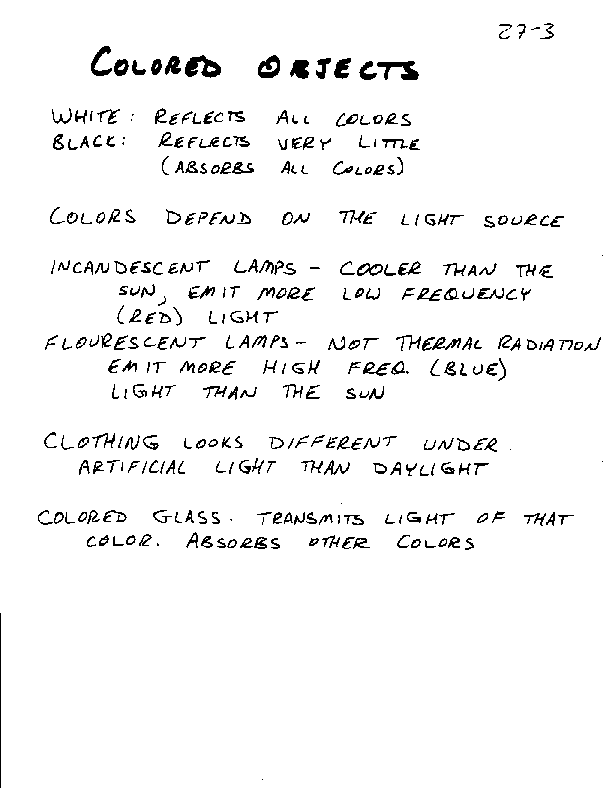 27-3
COLORED OBJECTS
WHITE: REFLECTS ALL COLORS
BLACK: REFLECTS VERY LITTLE
(ABSORBS ALL COLORS)
COLORS DEPEND ON THE LIGHT SOURCE
INCANDESCENT LAMPS - COOLER THAN THE
SUN, EMIT MORE LOW FREQUENCY
(RED) LIGHT
FLOURESCENT LAMPS - NOT THERMAL RADIATION
EMIT MORE HIGH FREQ. (BLUE)
LIGHT THAN THE SUN
CLOTHING LOOKS DIFFERENT UNDER
ARTIFICIAL LIGHT THAN DAYLIGHT
COLORED GLASS. TRANSMITS LIGHT OF THAT
COLOR. ABSORBS OTHER COLORS